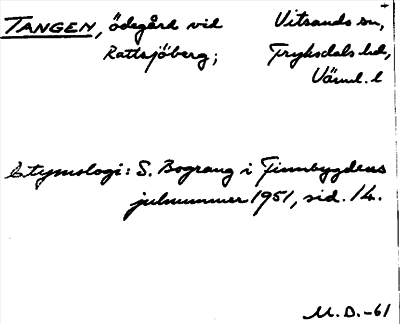 TANGEN, ödegård vid Vitsands sn,
Rattsjöberg; Fryksdals hd,
Värml. l
Etymologi: S. Bograng i Finnbygdens
julnummer 1951, sid. 14.
M. D. -61